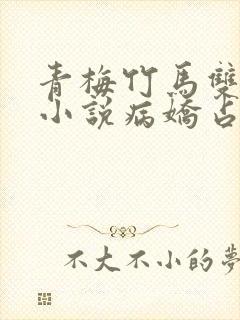 青梅竹馬雙
小說病嬌占
不大不小的夢